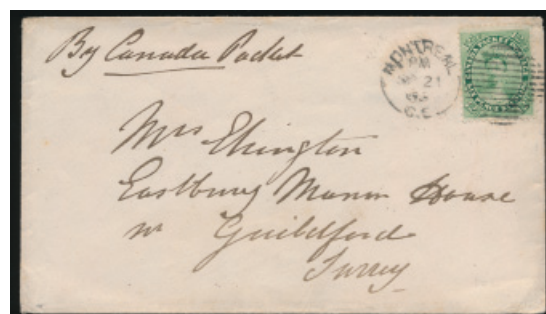 By Canada Packet
MONTREAL
PM
21
C.E
Mrs Elrington
Eastbury Manor House
nr Guildford
Surrey